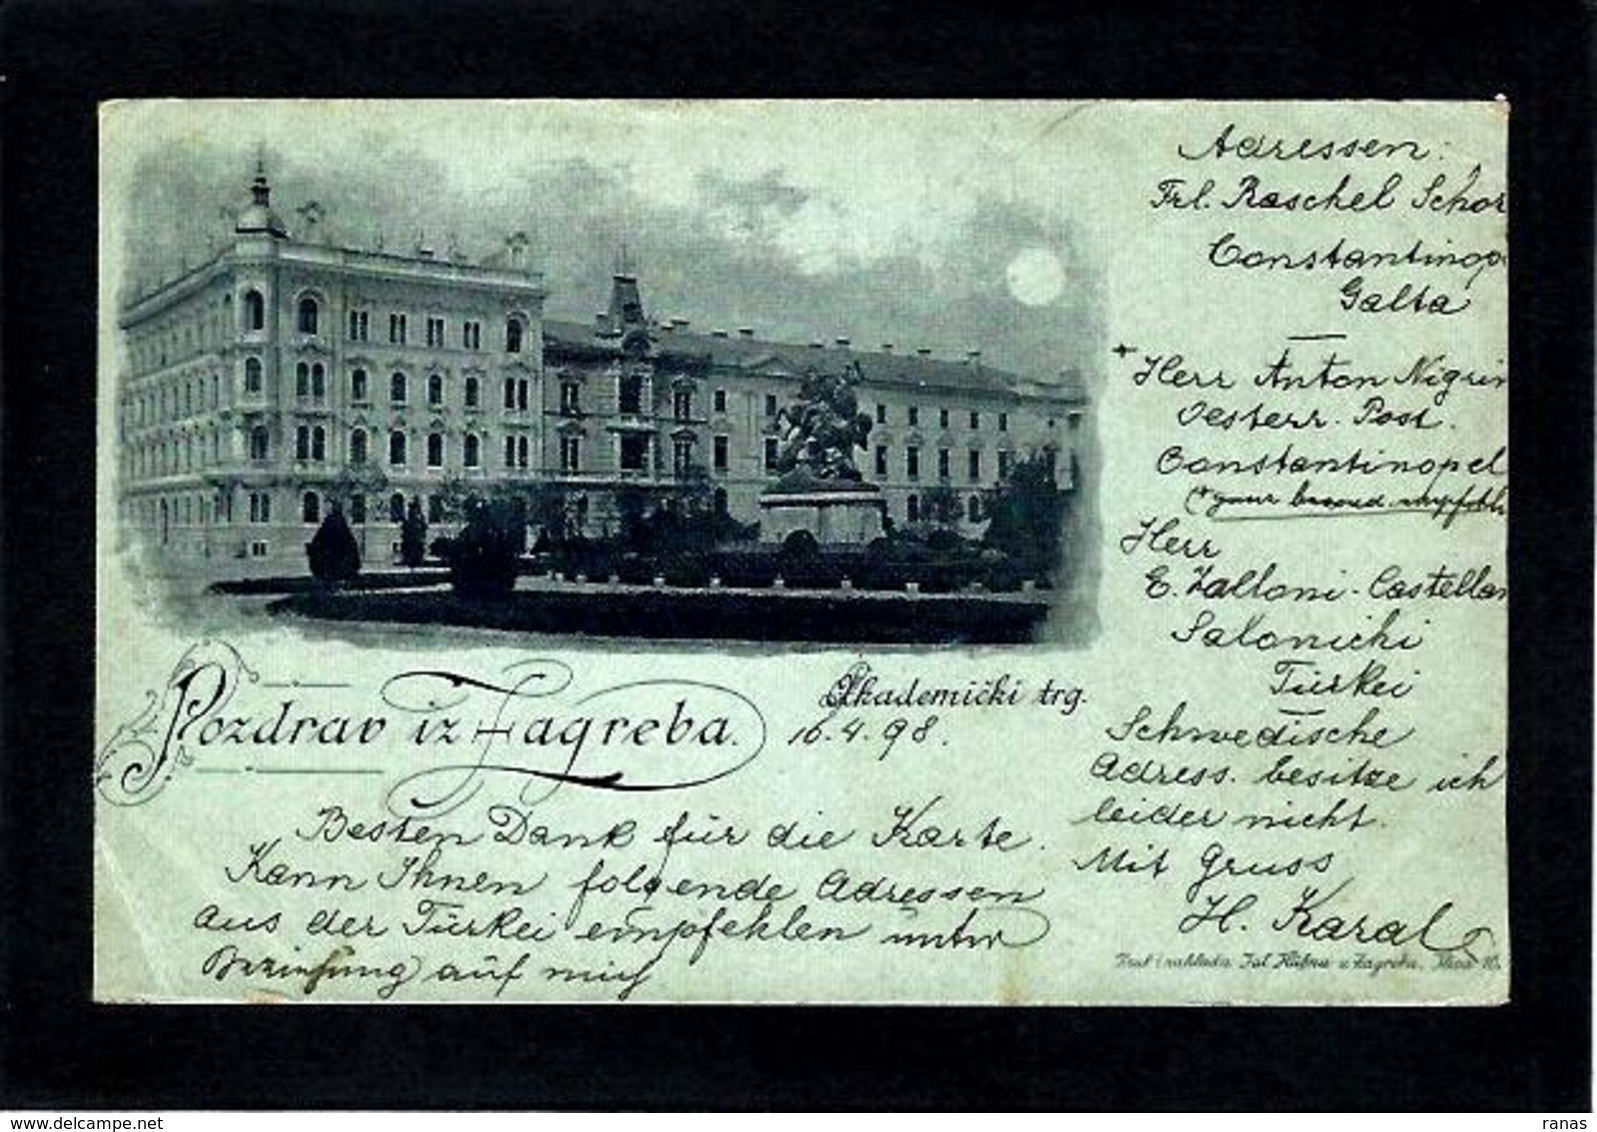 Adressen:
Frl. Raschel Schor
Constantinop
Galta
*Herr Anton Nigrin
Oesterr. Post.
Constantinopel
(*ganz besond. empfohl
Herr
E. Zalloni-Castellan
Salonichi
Türkei
Akademički trg.
Pozdrav iz Zagreba.
16.4.98.
Schwedische
Adress. besitze ich
leider nicht.
Mit Gruss
H. Karal
Besten Dank für die Karte.
Kann Ihnen folgende Adressen
aus der Türkei empfehlen unter
Beziehung auf mich
Tisak i naklada Jul. Hühna u Zagrebu.
www.delcampe.net
ranas